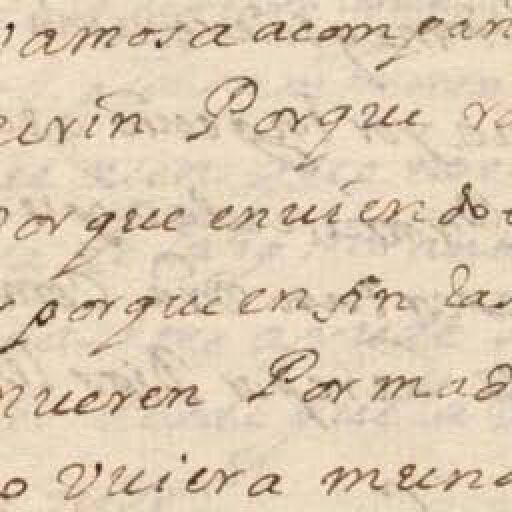 vamos a acompañ
eurin Porque ra
porque enuiendo
porque en fin las
mueren Por mad
o vuiera mund